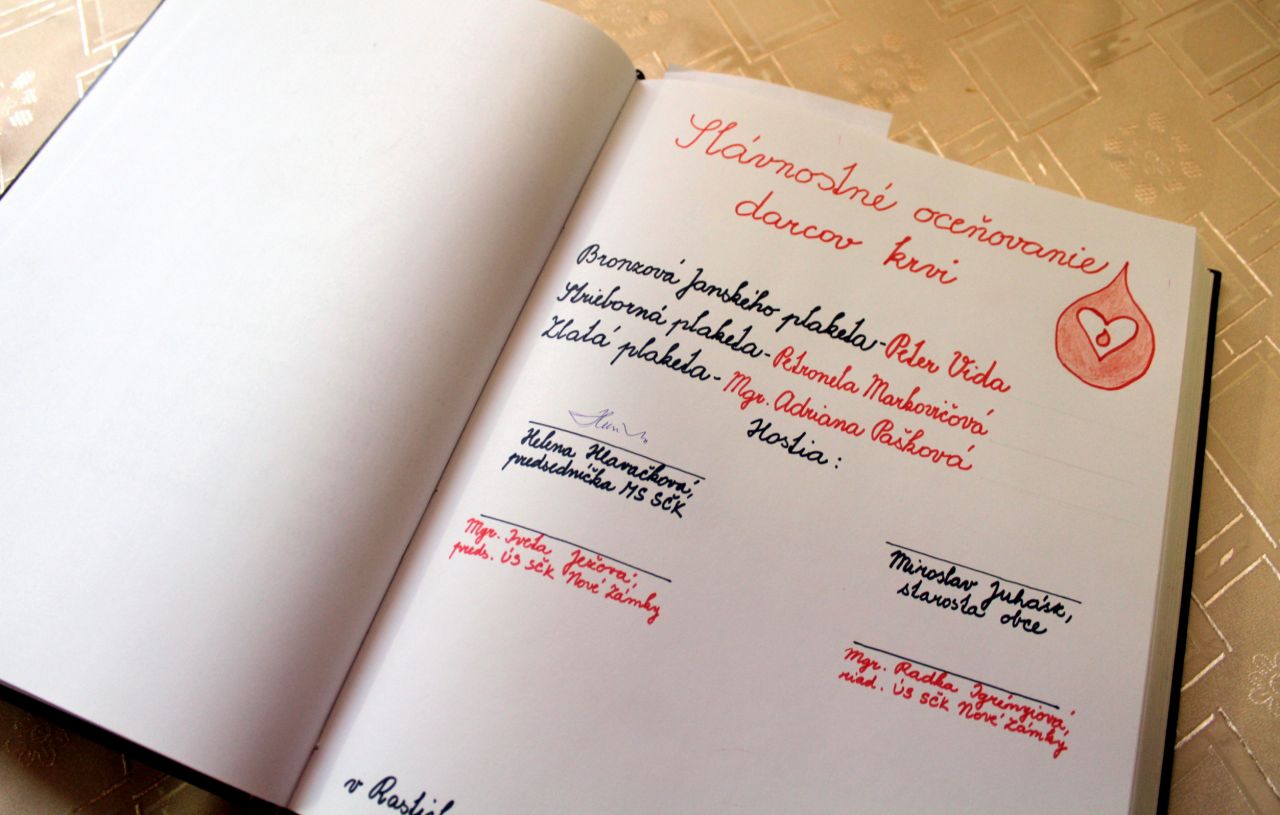 Slávnostné oceňovanie
darcov krvi
Bronzová Janského plaketa - Peter Vida
Strieborná plaketa - Petronela Markovičová
Zlatá plaketa - Mgr. Adriana Pašková
Hostia :
Helena Hlavačková,
predsedníčka MS SČK
Mgr. Iveta Ježová,
preds. ÚS SČK Nové Zámky
Miroslav Juhász,
starosta obce
Mgr. Radka Igrényiová,
riad. ÚS SČK Nové Zámky
v